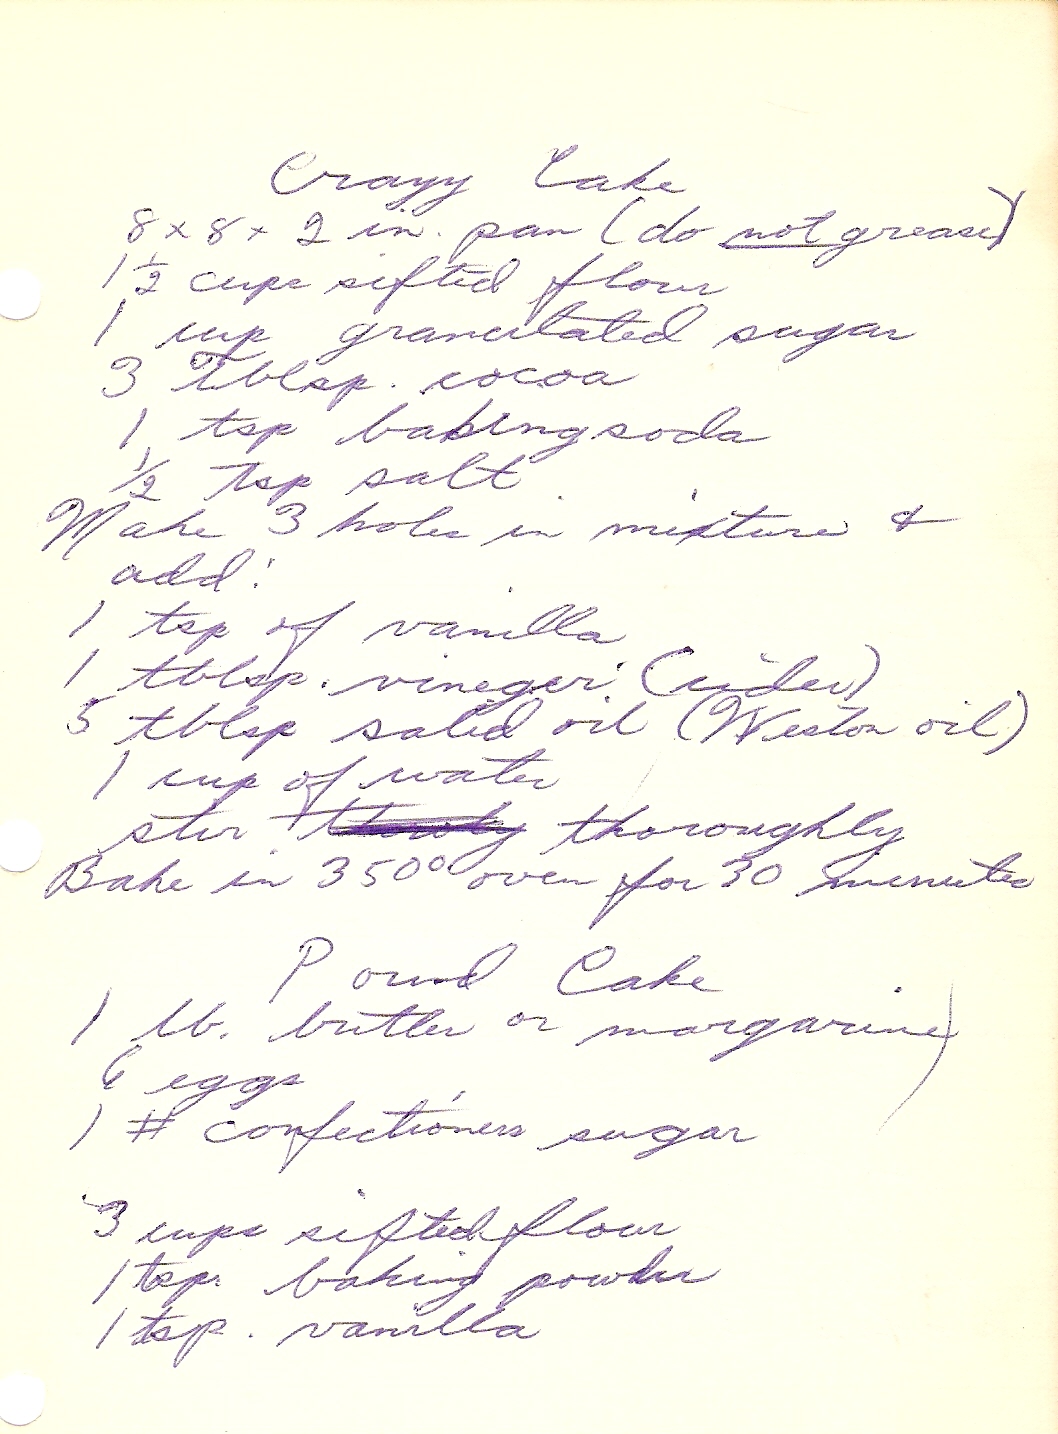 Crazy Cake
8 x 8 x 2 in. pan (do not grease)
1 1/2 cups sifted flour
1 cup granulated sugar
3 Tblsp. cocoa
1 tsp baking soda
1/2 tsp salt
Make 3 holes in mixture &
add:
1 tsp of vanilla
1 tblsp. vineger (cider)
5 tblsp salad oil (Weston oil)
1 cup of water
stir thoroughly
Bake in 350° oven for 30 minutes
Pound Cake
1 lb. butter or margarine)
6 eggs
1 # confectioners sugar
3 cups sifted flour
1 tsp. baking powder
1 tsp. vanilla